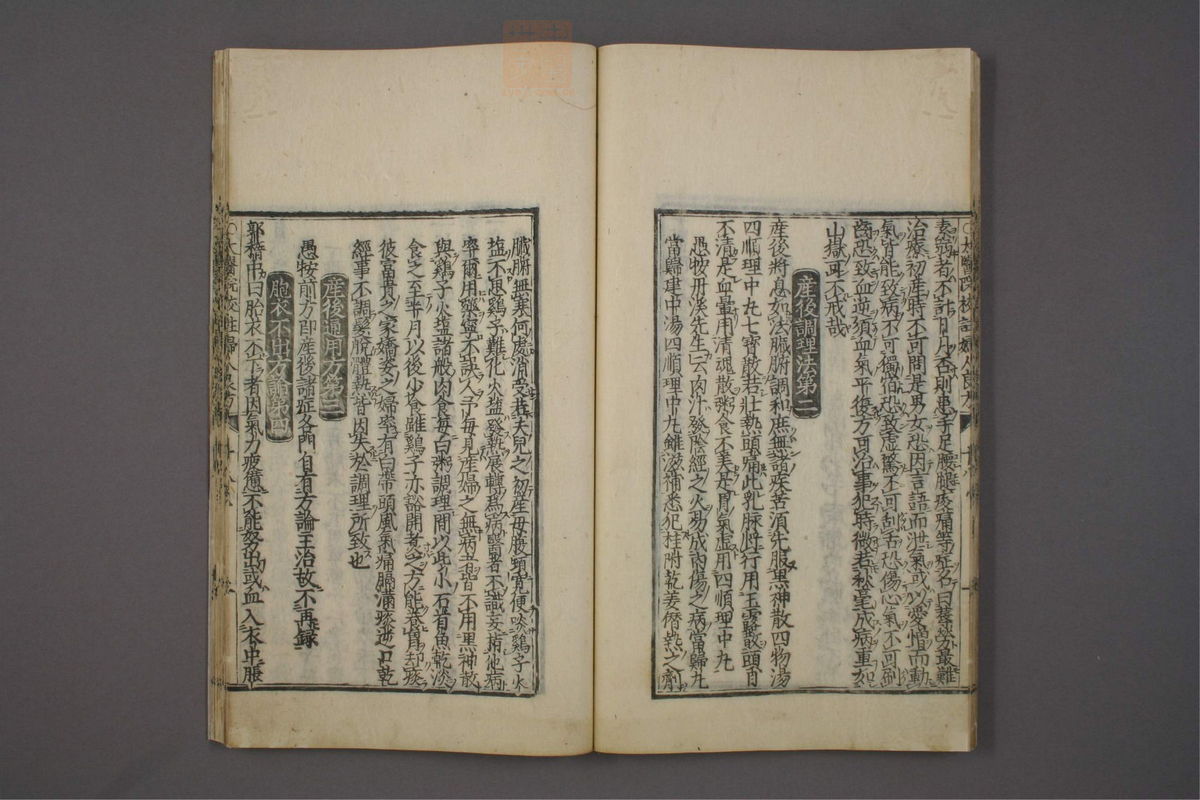 〇太醫院校註婦人良方
素寡者不許百凡否則患手足腰腿疼痛等症名曰蓐勞最難
治療初産時不可問是男女恐因言語而泄氣或以愛憎而動
氣皆能致病不可獨宿恐致虚驚不可刮舌恐傷心氣不可刷
齒恐致血逆須血氣平復方可治事犯時微若秋毫成病重如
山嶽可不戒哉
産後調理法第二
産後將息如法臓腑調和庶無諸疾苦須先服黒神散四物湯
四順理中丸七寳散若壮熱頭痛此乳脉将行用玉露散頭目
不清是血暈用清魂散粥食不美是胃氣虚用四順理中丸
愚按丹溪先生云肉汁發陰經之火易成内傷之病當歸丸
當歸建中湯四順理中丸雖滋補悉犯桂附乾姜僭熱之劑
臓腑無寒何處消受若夫兒之初産母腹頓寛便啖鷄子火
塩不思鷄子難化火塩發熱展轉爲病醫者不識妄指他病
率爾用藥寧不誤人予毎見産婦之無病者皆不用黒神散
與鷄子火塩諸般肉食毎白粥調理間以此小石首魚乾淡
食之至半月以後少食雖鷄子亦豁開煮之方能養胃却痰
彼富貴之家嬌姿之婦率有白帶頭風氣痛膈滿痰逆口乾
經事不調髮脱體熱皆因失於調理所致也
産後通用方第三
愚按前方即産後諸症各門自有方論主治故不再録
胞衣不出方論第四
郭稽中曰胎衣不下者因氣力疲憊不能努出或血入衣中脹
〇太醫院校註婦人良方